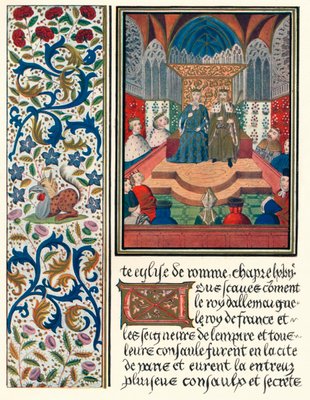 te eglise de romme. chapre lxiiij
Ous scaues cõment
le roy dallemaigne
le roy de france et
les seigneurs de lempire et tous
leurs consaulx furent en la cite
de paris et eurent la entreux
plusieus consaulx et secrete